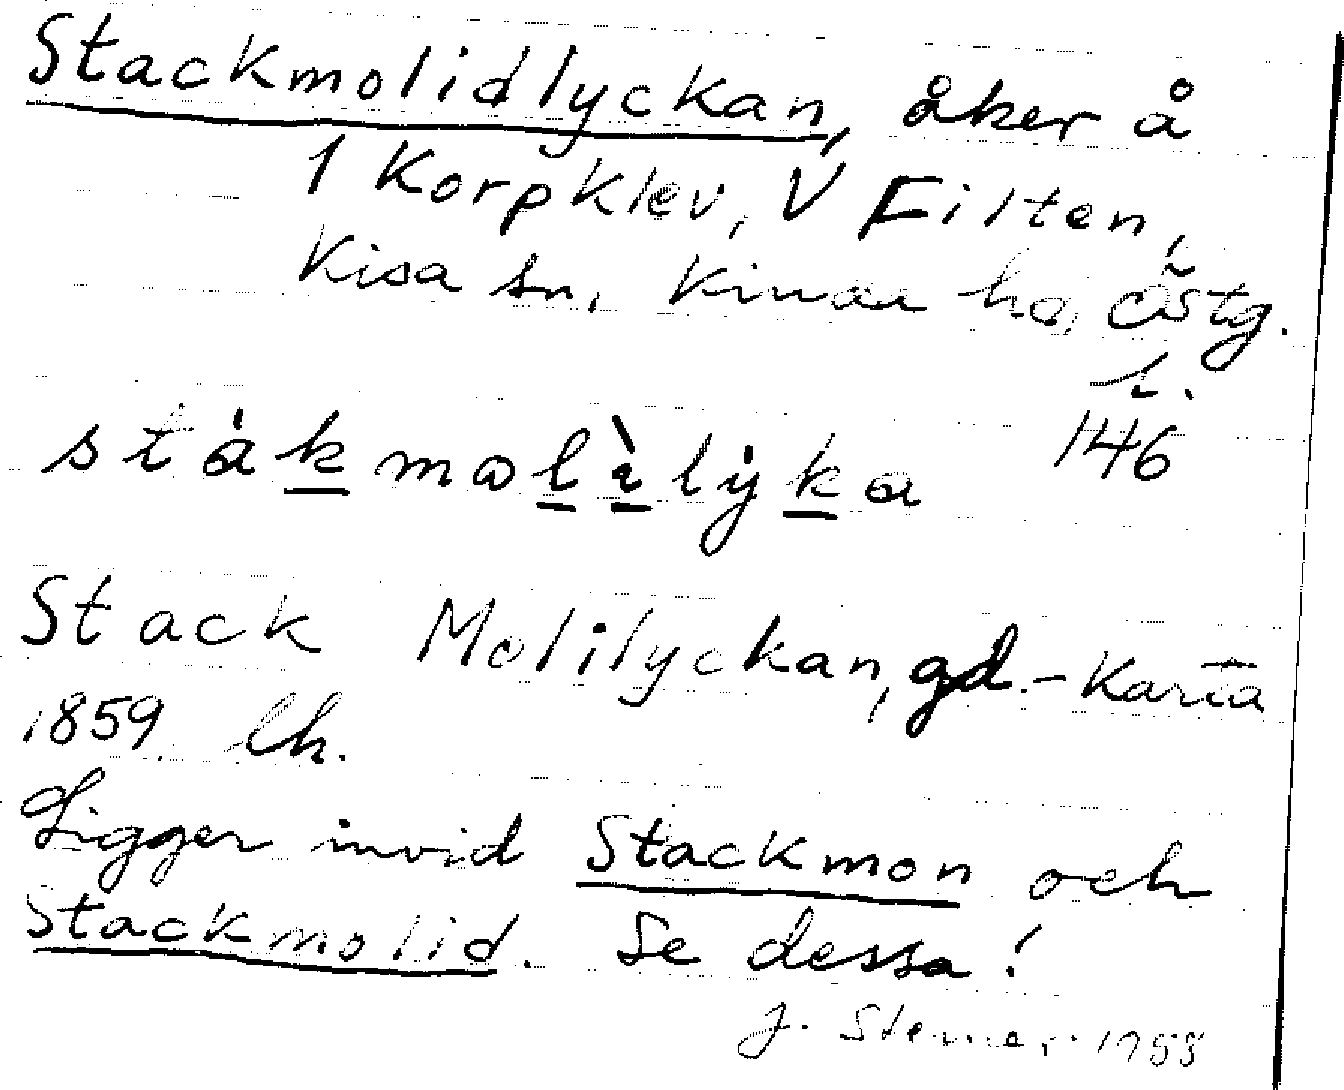 Stackmolidlyckan, åker å
1 Korpklev, V Filten,
Kisa sn, Kinda hd, Östg.
l.
146
stȧkmolìlẏka
Stack Molilyckan, gd.-karta
1859 lh.
Ligger invid Stackmon och
Stackmolid. Se dessa!
J. Sterner 1953